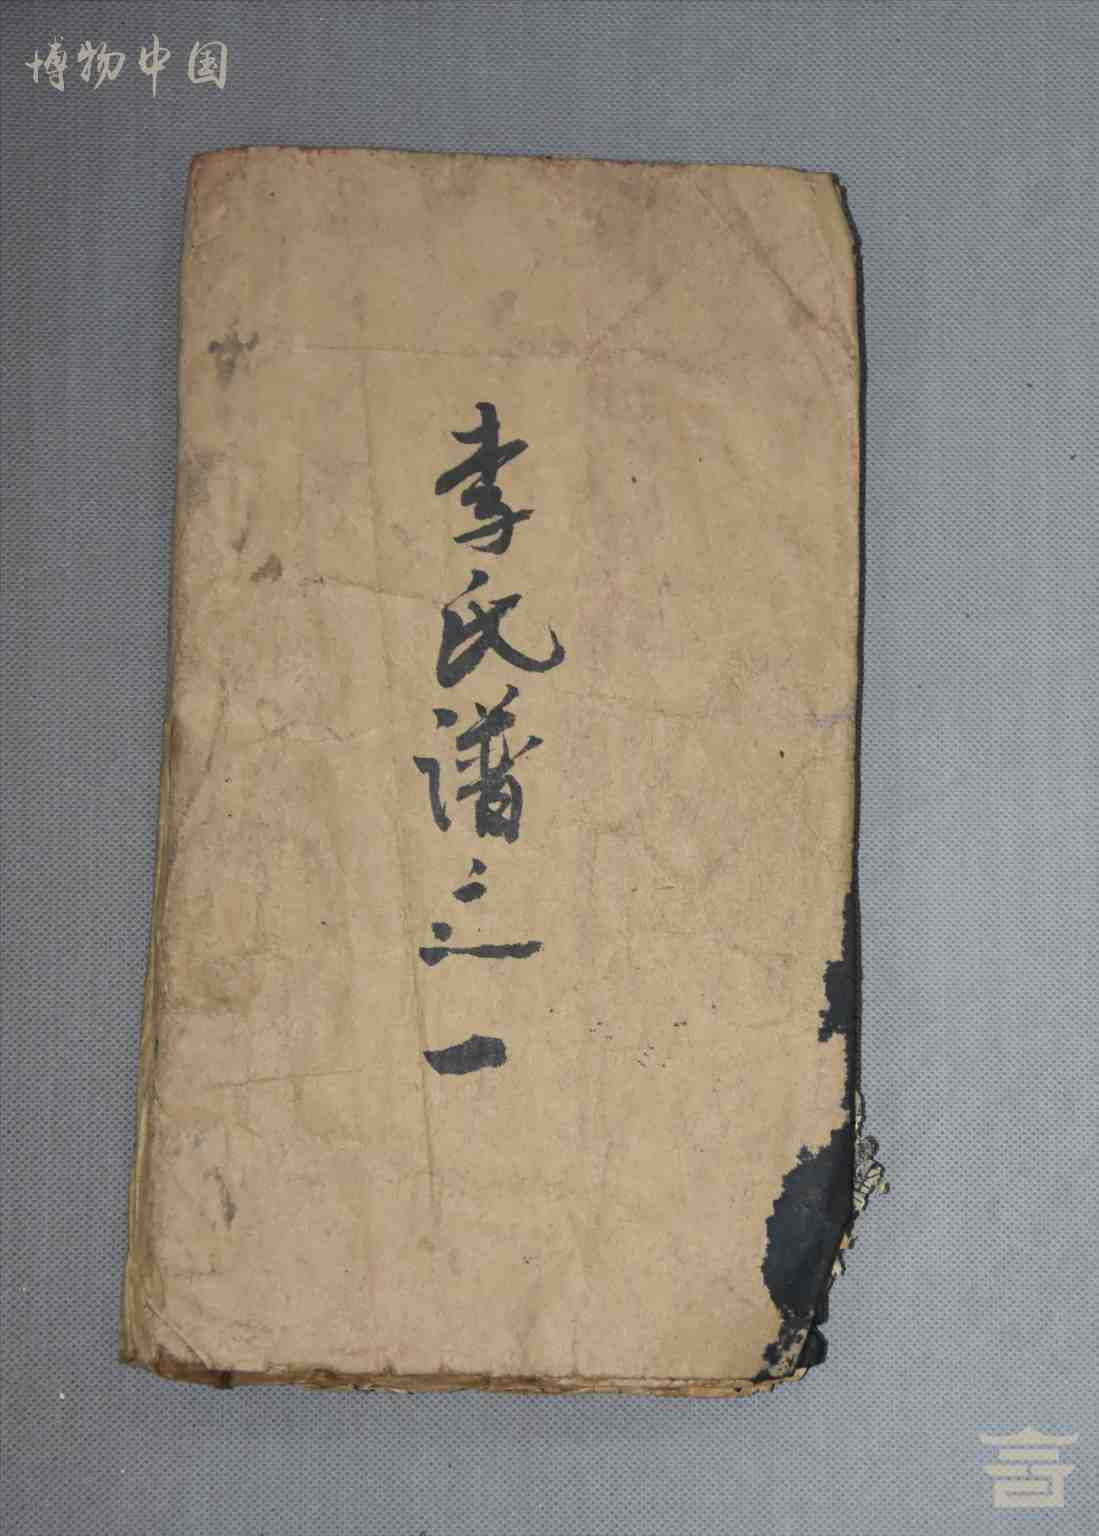 博物中国
李氏谱之一